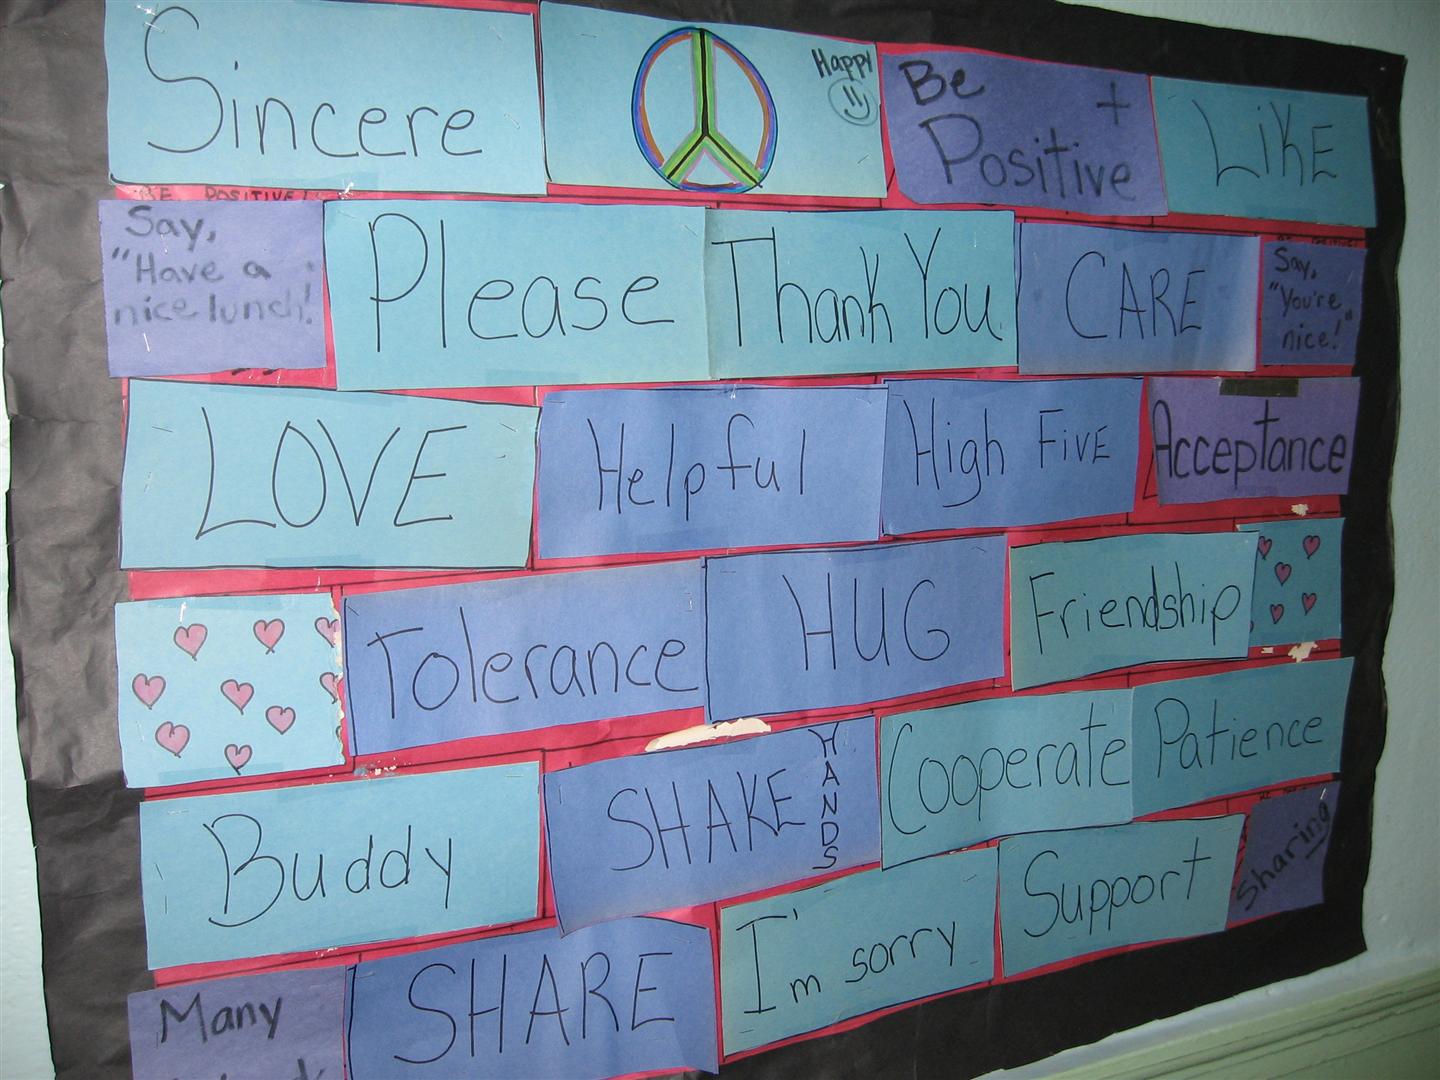 Sincere
Happy
Be
Positive +
LiKE
BE POSITIVE!
Say,
"Have a
nice lunch!
Please
Thank You
CARE
Say,
"You're
nice!"
LOVE
Helpful
High FIVE
Acceptance
Tolerance
HUG
Friendship
Buddy
SHAKE
HANDS
Cooperate
Patience
Many
SHARE
I'm sorry
Support
Sharing